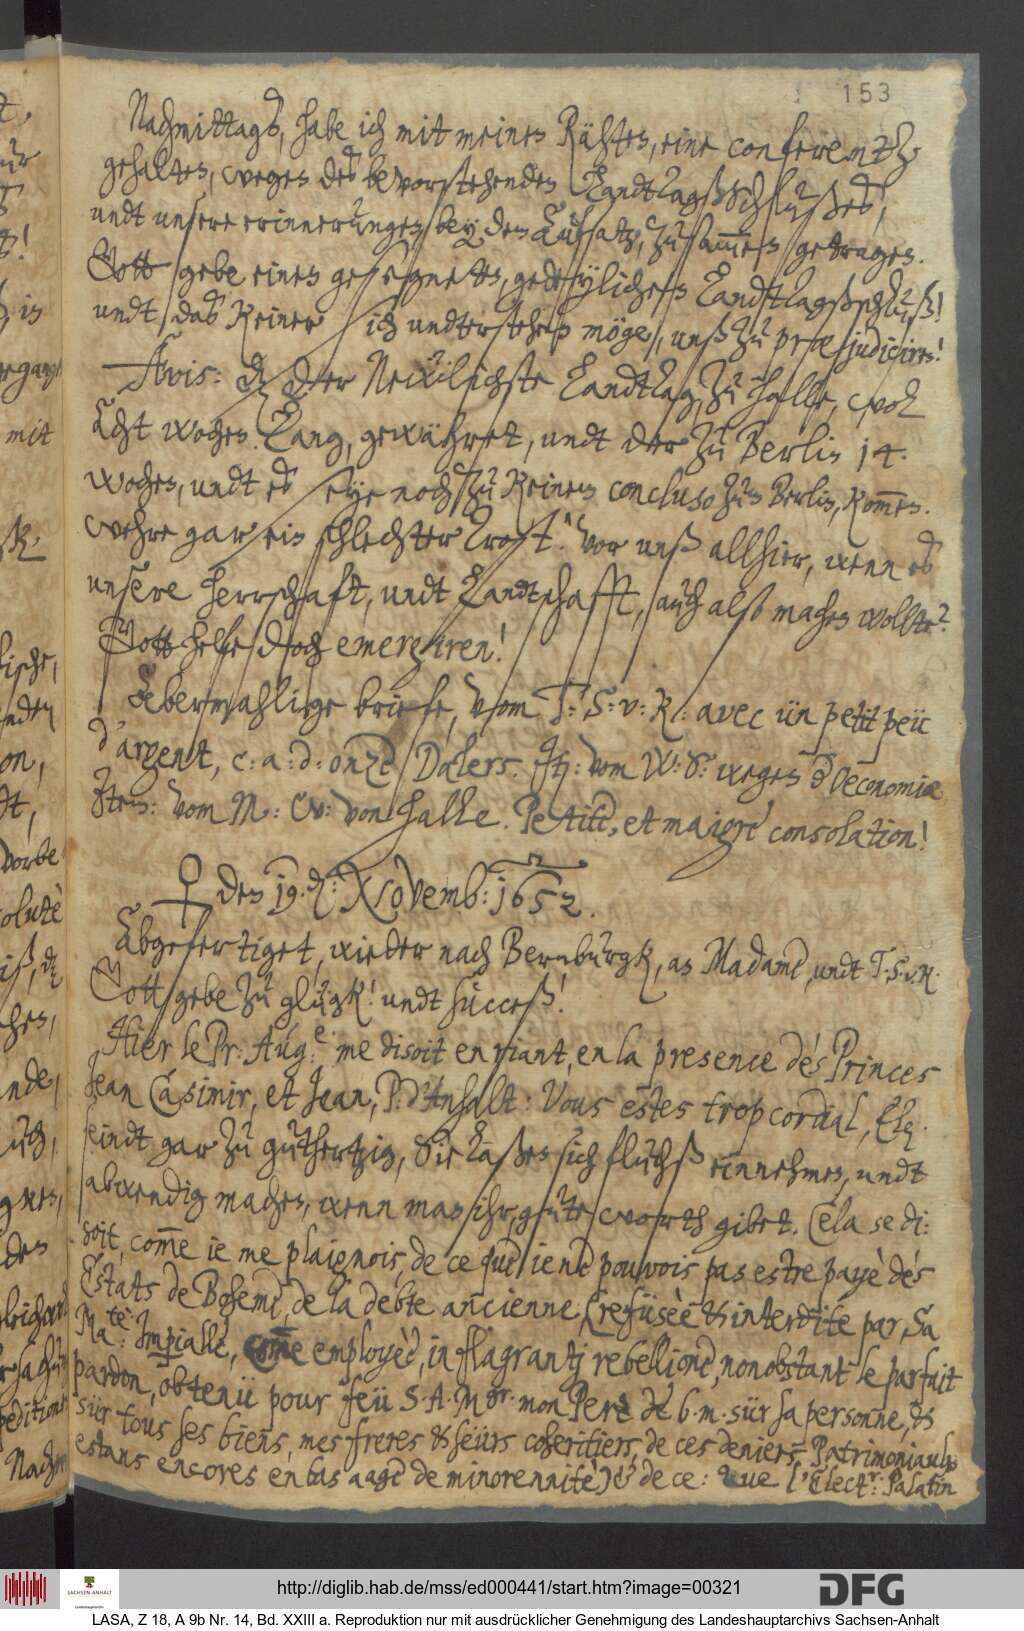 153
Nachmittags, habe ich mit meinen Rähten, eine conferentz
gehalten, wegen des bevorstehenden Landtagßschlußes,
undt unsere erinnerungen bey den Aufsatz, zusam̅en getragen.
Gott gebe einen gesegneten, gedeylichen Landtagßschluß!
undt daß Keiner sich undterstehen möge, unß zu præjudiciren!
Avis: dz der Newlichste Landtag, zu Halle, wol
Acht wochen Lang, gewähret, undt der zu Berlin 14.
wochen, undt es seye noch zu Keinem concluso zu Berlin, kom̅en.
wehre gar ein schlechter Trost! vor unß allhier, wenn es
unsere herrschaft, undt Landtschafft, auch also machen wollte?
Gott helfe doch emergiren!
Abermahlige briefe, vom T: S: v: R: avec ün petit peü
d'argent, c: a: d: onze Dalers. It: vom W: S: wegen der Oeconomia
Item: vom M: W: von Halle. Petite, et maigre consolation!
♀ den 19. d: Novemb: 1652.
Abgefertiget, wieder nach Bernburgk, an Madame, undt T. S. v. R.
Gott gebe zu glügk! undt succeß!
Hier le Pr: Aug:e me disoit en riant, en la presence des Princes
Jean Casimir, et Jean, P. d'Anhalt: Vous estes trop cordial, Etz.
seindt gar zu guthertzig, Sie Laßen sich flugß einnehmen, undt
abwendig machen, wenn man ihr, guhte worth gibet. Cela se di:
soit, com̅e ie me plaignois, de ce que ie ne pouvois pas estre payè dés
Estats de Boheme, de la debte ancienne, (refüsèe & interdite par, Sa
Ma:tè Imp̅ialle, com̅e employèe, in flagrantj rebellione, nonobstant le parfait
pardon, obtenü pour feü S. A. Mgr. mon Pere de b. m. sür sa personne, &
sür tous ses biens, mes freres & seürs coheritiers, de ces deniers Patrimoniaulx
estans encores en bas aage de minorennitè) & de ce: que l'Elect:r Palatin
http://diglib.hab.de/mss/ed000441/start.htm?image=00321
SACHSEN-ANHALT
DFG
LASA, Z 18, A 9b Nr. 14, Bd. XXIII a. Reproduktion nur mit ausdrücklicher Genehmigung des Landeshauptarchivs Sachsen-Anhalt